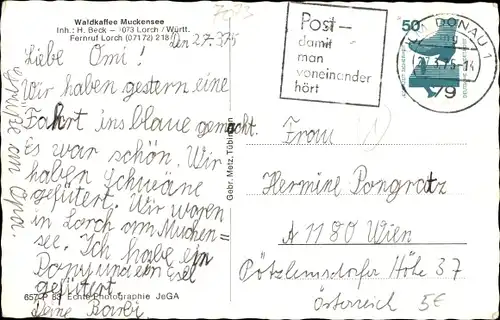 7073
Waldkaffee Muckensee
Inh.: H. Beck – 7073 Lorch / Württ.
Fernruf Lorch (07172) 218
den 2.7.375
Liebe Omi!
Wir haben gestern eine
Fahrt ins blaue gemacht.
Es war schön. Wir
haben Schwäne
gefütert. Wir waren
in Lorch am Muchen=
see. Ich habe ein
Pony und ein Esel
gefütert.
Deine Barbi
Grüße an Opa.
657 P 83 Echte Photographie JeGA
Gebr. Metz, Tübingen
Post –
damit
man
voneinander
hört
50
DONAU 1
79
Frau
Hermine Pongratz
A 1180 Wien
Pötzleinsdorfer Höhe 37
Österreich
5€